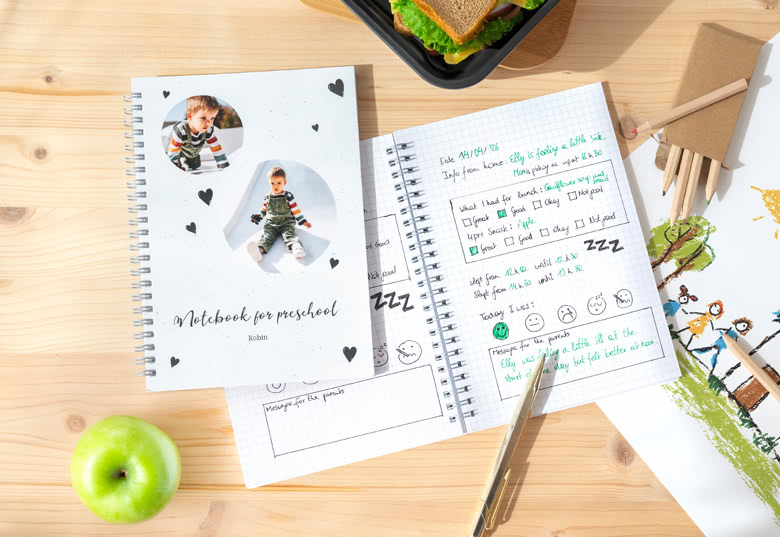 Notebook for preschool
Robin
Not good
zzz
Message for the parents
Date 14/04/'26
Info from home: Elly is feeling a little sick.
Mom is picking me up at 16 h 30
What I had for lunch: Cauliflower soup and
Great Good Okay Not good
4PM Snack: Apple
Great Good okay Not good
zzz
Slept from 12 h 00 until 12 h 30
Slept from 14 h 30 until 15 h 30
Today I was:
Message for the parents
Elly was feeling a little ill at the
start of the day but felt better at noon.